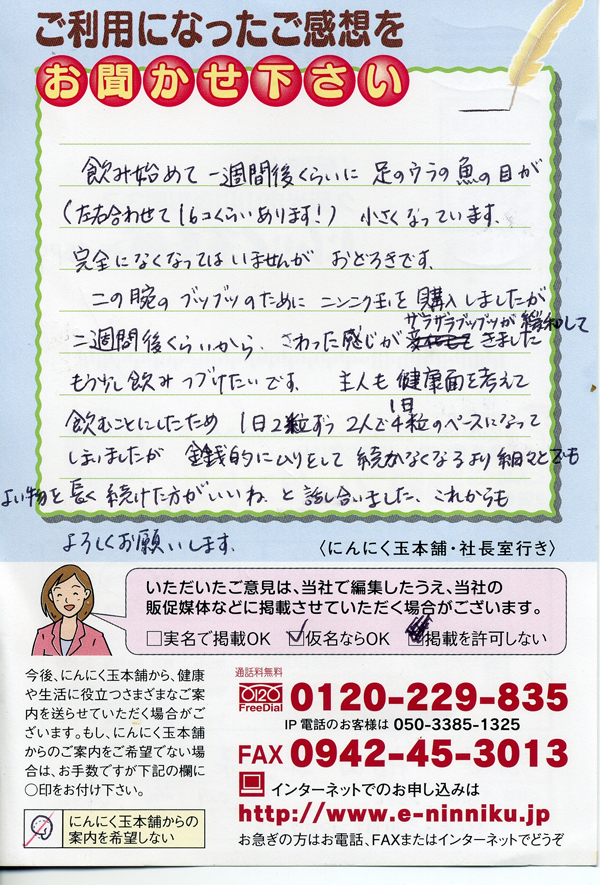 ご利用になったご感想を
お聞かせ下さい
飲み始めて一週間後くらいに 足のウラの魚の目が
(左右合わせて16コくらいあります!) 小さくなっています。
完全になくなってはいませんが おどろきです。
二の腕のブツブツのために ニンニク玉を購入しましたが
ザラザラブツブツが緩和して
二週間後くらいから、さわった感じが きました
もう少し飲みつづけたいです。 主人も健康面を考えて
飲むことにしたため 1日2粒ずつ 2人で1日4粒のペースになって
しまいましたが 金銭的にムリをして 続かなくなるより 細々とでも
よい物を長く続けた方がいいね。と話し合いました。これからも
よろしくお願いします。
〈にんにく玉本舗・社長室行き〉
いただいたご意見は、当社で編集したうえ、当社の
販促媒体などに掲載させていただく場合がございます。
□実名で掲載OK ☑仮名ならOK □掲載を許可しない
今後、にんにく玉本舗から、健康
や生活に役立つさまざまなご案
内を送らせていただく場合がご
ざいます。もし、にんにく玉本舗
からのご案内をご希望でない場
合は、お手数ですが下記の欄に
○印をお付け下さい。
にんにく玉本舗からの
案内を希望しない
通話料無料
0120 FreeDial 0120-229-835
IP電話のお客様は 050-3385-1325
FAX 0942-45-3013
インターネットでのお申し込みは
http://www.e-ninniku.jp
お急ぎの方はお電話、FAXまたはインターネットでどうぞ